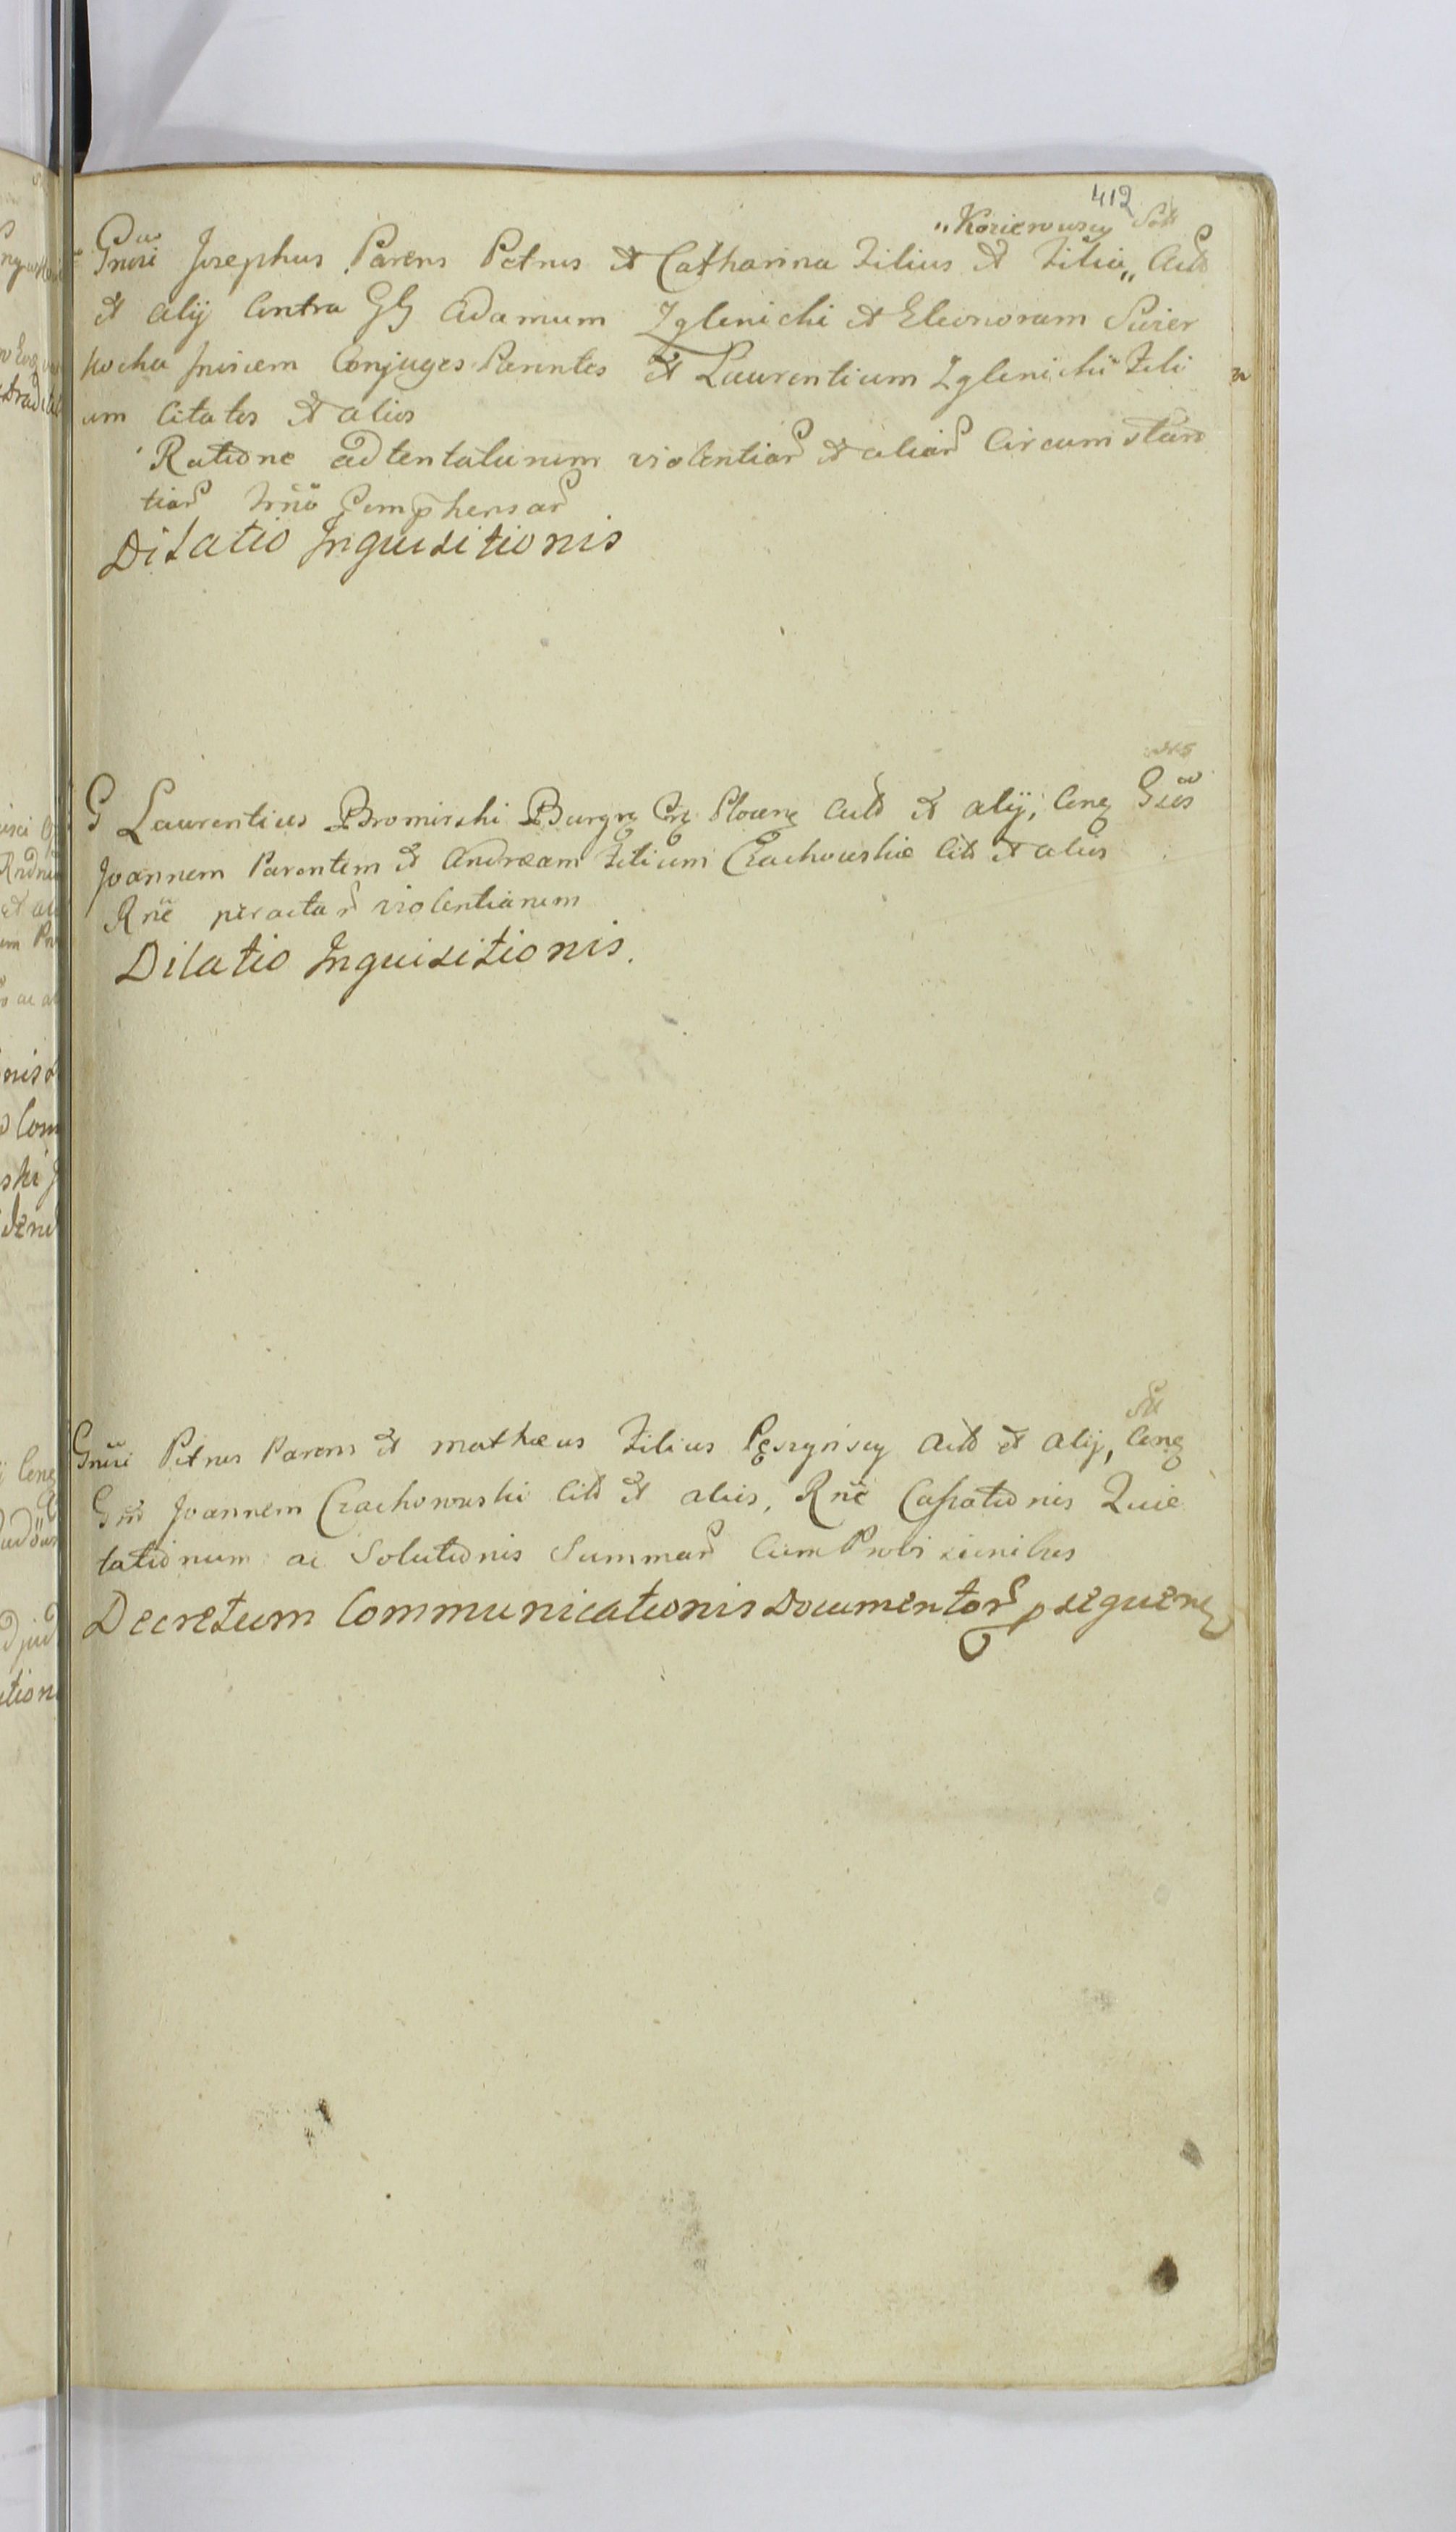 412
"Kozierowscy Sott
Gnosi Josephus Parens Petrus et Catharina Filius et Filia,, Actt
et alij Contra GG Adamum Zglenicki et Eleonoram Swier
kocka Jnvicem Conjuges Parentes et Laurentium Zglenicki Fili
um Citatos et alios
Ratione adtentatarum violentiar et aliar Circumstan
tiar Trnö Comphensar
Dilatio Jnquisitionis
G Laurentius Bromirski Burgg Plocen Actt et alij, Cong Gsos
Joannem Parentem et Andream Filium Czachowskie Citt et alios
Rnë peractar violentiarum
Dilatio Jnquisitionis.
Gnösi Petrus Parens et Mathæus Filius Pęszyńscy Actt et alij, Cong
Gsm Joannem Czachowski Citt et alios, Rnë Cassationis Quie
tationum ac Solutionis Summar Cum Provisionibus
Decretum Communicationis Documentor psequen